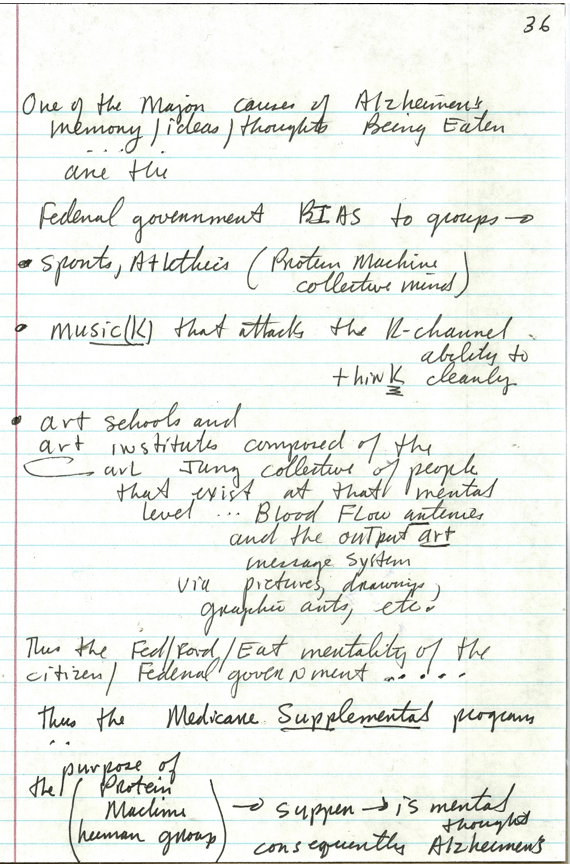 36
One of the Major causes of Alzheimer's
memory/ideas/thoughts Being Eaten
....
are the
Federal government BIAS to groups →
• sports, Athletics (Protein Machine
collective mind)
• music(K) that attacks the K-channel
ability to
think clearly
• art schools and
art institutes composed of the
art Jung collective of people
that exist at that mental
level ... Blood Flow arteries
and the output art
message system
via pictures, drawings,
graphic arts, etc.
Thus the Fed/Food/Eat mentality of the
citizen/Federal government .....
Thus the Medicare Supplemental program
..
purpose of
the (Protein
Machine
human group) → supper → is mental
thought
consequently Alzheimer's